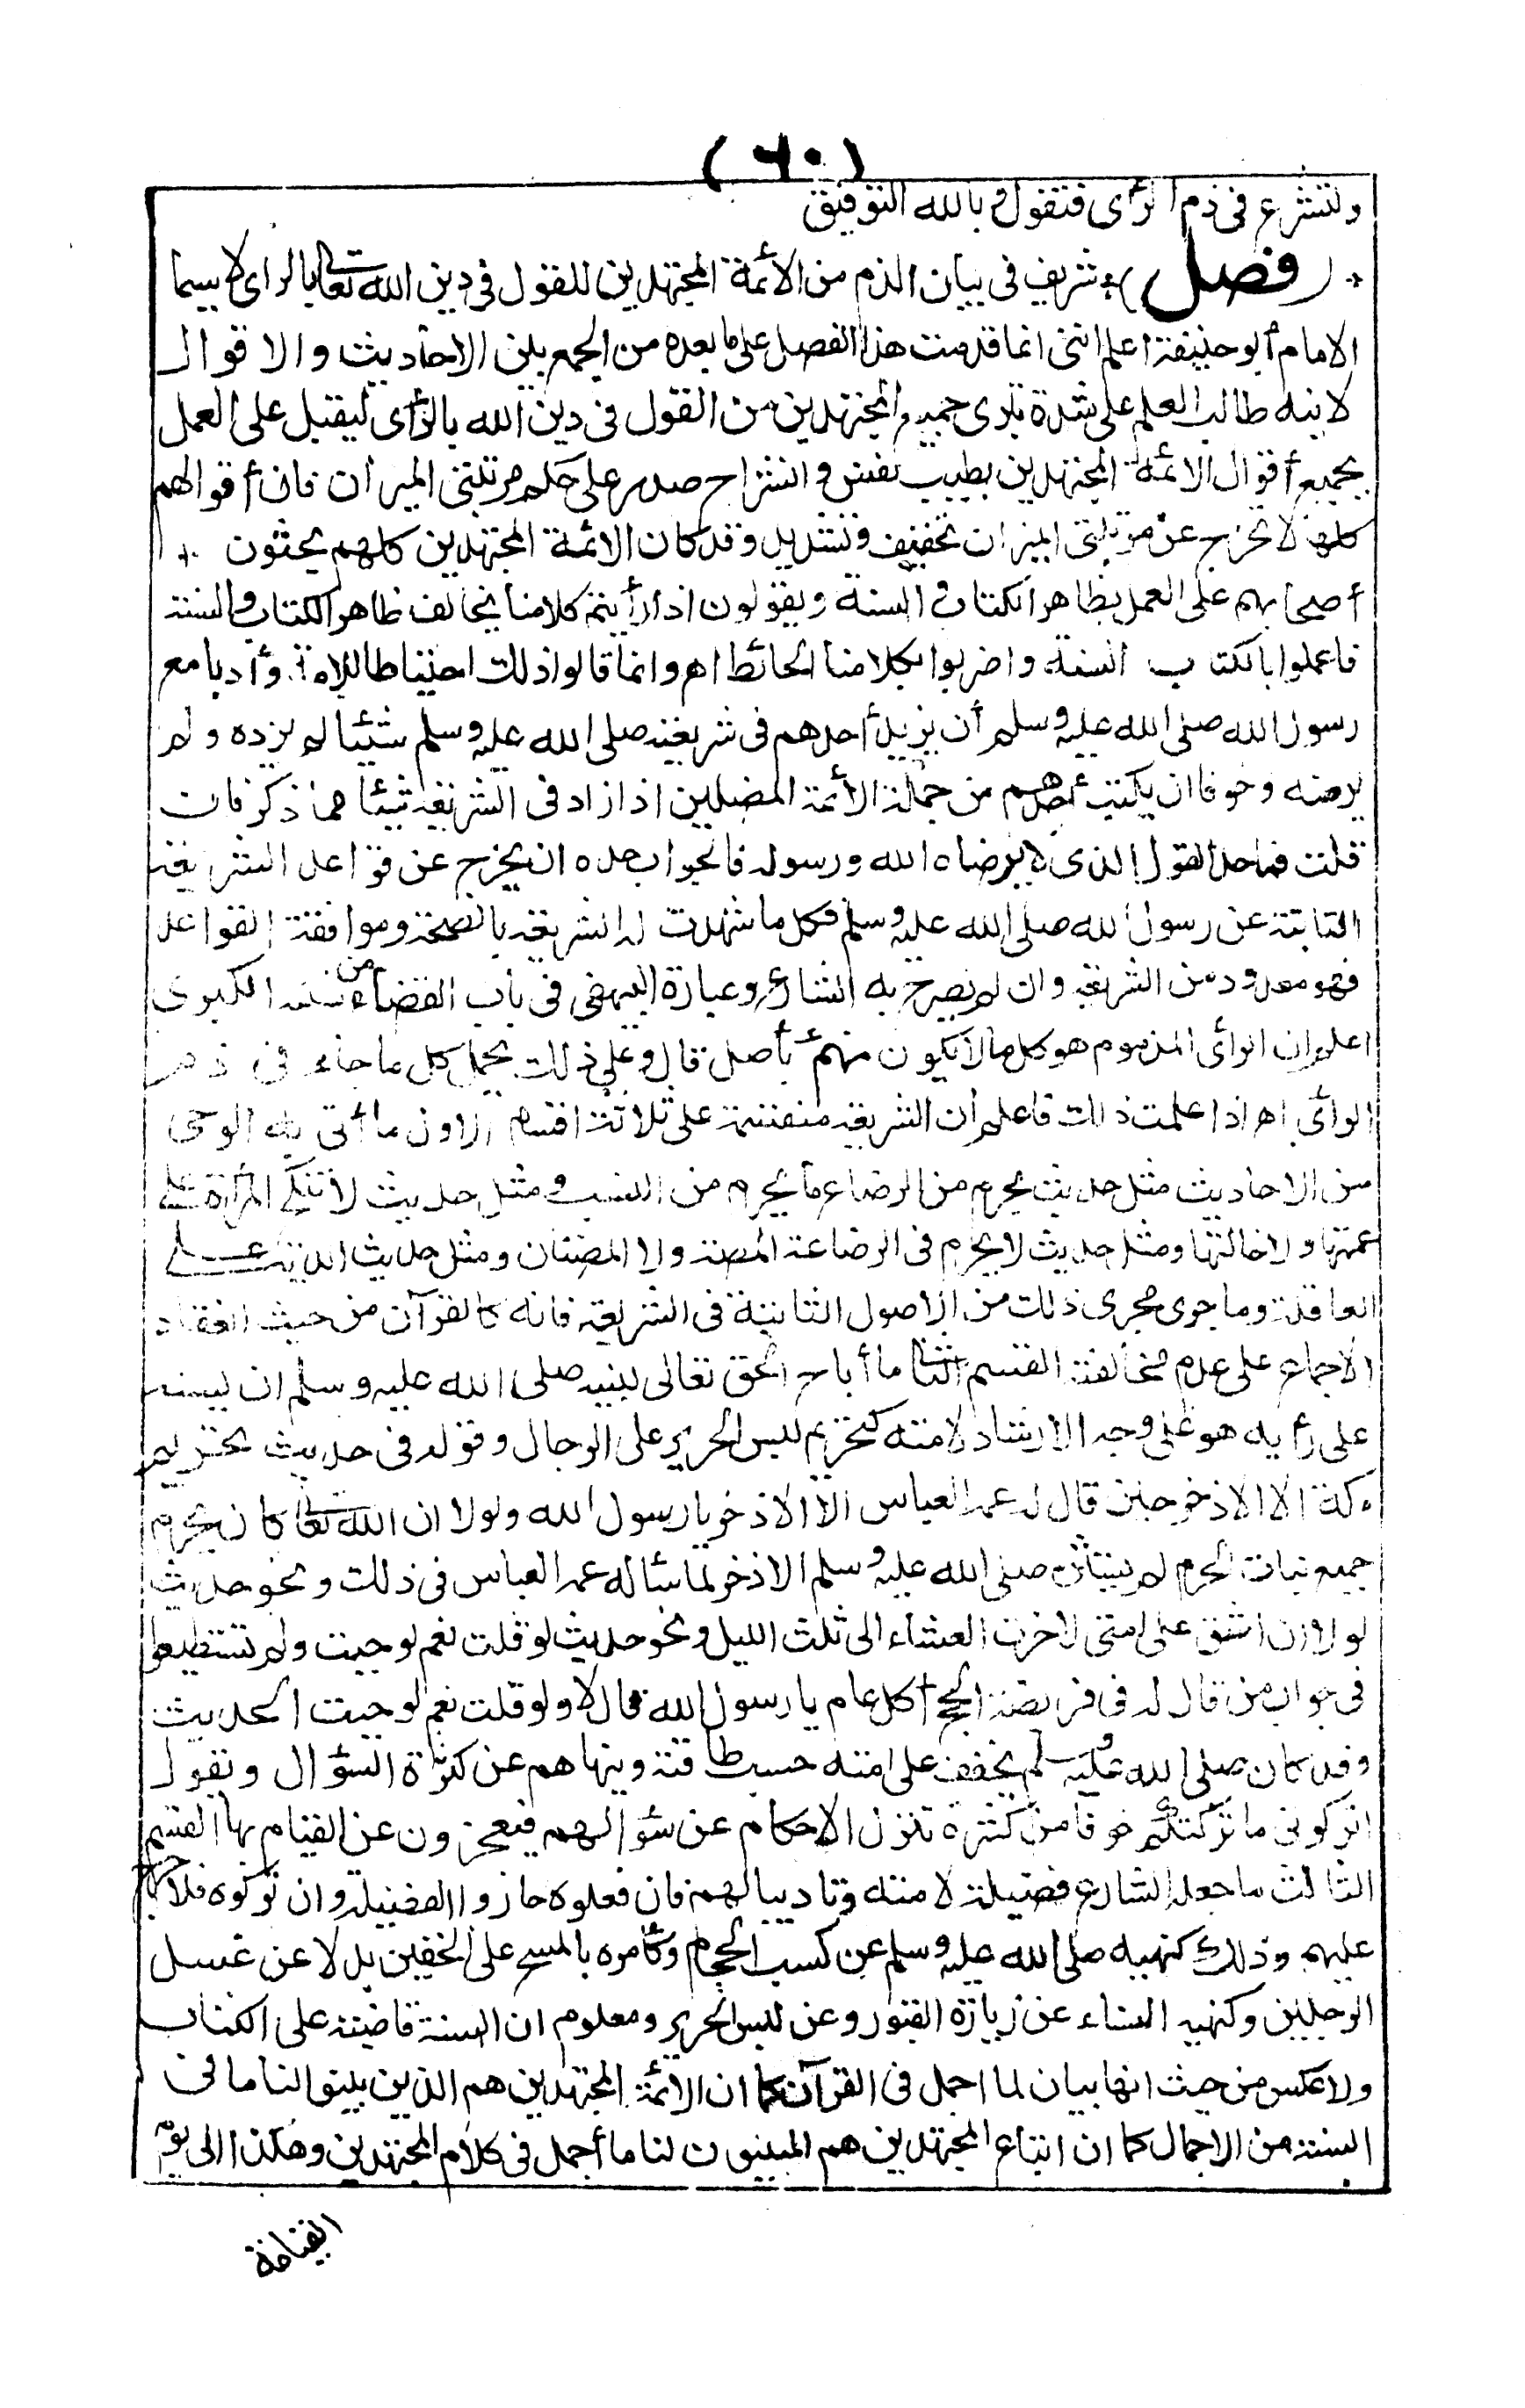 (٦٠)
ولنشرع في ذم الرأى فنقول وبالله التوفيق
* (فصل)* شريف في بيان الذم من الأئمة المجتهدين للقول في دين الله تعالى بالرأى لا سيما
الامام أبو حنيفة اعلم انني انما قدمت هذا الفصل على ما بعده من الجمع بين الاحاديث والاقوال
لانبه طالب العلم على شدة تبرى جميع المجتهدين من القول في دين الله بالرأى ليقبل على العمل
بجميع أقوال الائمة المجتهدين بطيب نفس وانشراح صدر على حكم مرتبتى الميزان فان أقوالهم
كلها لا تخرج عن مرتبتى الميزان تخفيف وتشديد وقد كان الائمة المجتهدين كلهم يحثون *
أصحابهم على العمل بظاهر الكتاب والسنة ويقولون اذا رأيتم كلامنا يخالف ظاهر الكتاب والسنة
فاعملوا بالكتاب السنة واضربوا بكلامنا الحائط اهـ وانما قالوا ذلك احتياطا للامة وأدبا مع
رسول الله صلى الله عليه وسلم أن يزيد أحدهم في شريعته صلى الله عليه وسلم شيئا لم يرده ولم
يرضه وخوفا ان يكتب أحدهم من جملة الأئمة المضلين اذا زاد في الشريعة شيئا مما ذكر فان
قلت فما حد القول الذى لا يرضاه الله ورسوله فالجواب حده ان يخرج عن قواعد الشريعة
الثابتة عن رسول الله صلى الله عليه وسلم فكل ما شهدت له الشريعة بالصحة وموافقة القواعد
فهو معدود من الشريعة وان لم يصرح به الشارع وعبارة البيهقى في باب القضاء من سننه الكبرى
اعلم ان الرأى المذموم هو كل ما لا يكون مشبها بأصل قال وعلى ذلك يحمل كل ما جاء في ذم
الرأى اهـ اذا علمت ذلك فاعلم أن الشريعة منقسمة على ثلاثة اقسام الاول ما أتى به الوحى
من الاحاديث مثل حديث يحرم من الرضاع ما يحرم من النسب ومثل حديث لا تنكح المرأة على
عمتها ولا خالتها ومثل حديث لا يحرم في الرضاعة المصة ولا المصتان ومثل حديث الدية على
العاقلة وما جرى مجرى ذلك من الاصول الثابتة في الشريعة فانه كالقرآن من حيث انعقاد
الاجماع على عدم مخالفته القسم الثانى ما أباح الحق تعالى لنبيه صلى الله عليه وسلم ان يسنه
على رأيه هو على وجه الارشاد لامته كتحريم لبس الحرير على الرجال وقوله في حديث تحريم
مكة الا الاذخر حين قال له عمه العباس الا الاذخر يا رسول الله ولولا ان الله تعالى كان يحرم
جميع نبات الحرم لم يستثن صلى الله عليه وسلم الاذخر لما سأله عمه العباس في ذلك ونحو حديث
لولا ان اشق على امتى لاخرت العشاء الى ثلث الليل ونحو حديث لو قلت نعم لوجبت ولم تستطيعوا
في جواب من قال له في فريضة الحج أكل عام يا رسول الله قال لا ولو قلت نعم لوجبت الحديث
وقد كان صلى الله عليه وسلم يخفف على امته حسب طاقته وينهاهم عن كثرة السؤال ويقول
اتركونى ما تركتكم خوفا من كثرة تنزل الاحكام عن سؤالهم فيعجزون عن القيام بها القسم
الثالث ما جعله الشارع فضيلة لامته وتاديبا لهم فان فعلوه حازوا الفضيلة وان تركوه فلا حرج
عليهم وذلك كنهيه صلى الله عليه وسلم عن كسب الحجام وكأمره بالمسح على الخفين بدلا عن غسل
الرجلين وكنهيه النساء عن زيارة القبور وعن لبس الحرير ومعلوم ان السنة قاضية على الكتاب
ولا عكس من حيث انها بيان لما اجمل في القرآن كما ان الائمة المجتهدين هم الذين بينوا لنا ما في
السنة من الاجمال كما ان اتباع المجتهدين هم المبينون لنا ما أجمل في كلام المجتهدين وهكذا الى يوم
القيامة